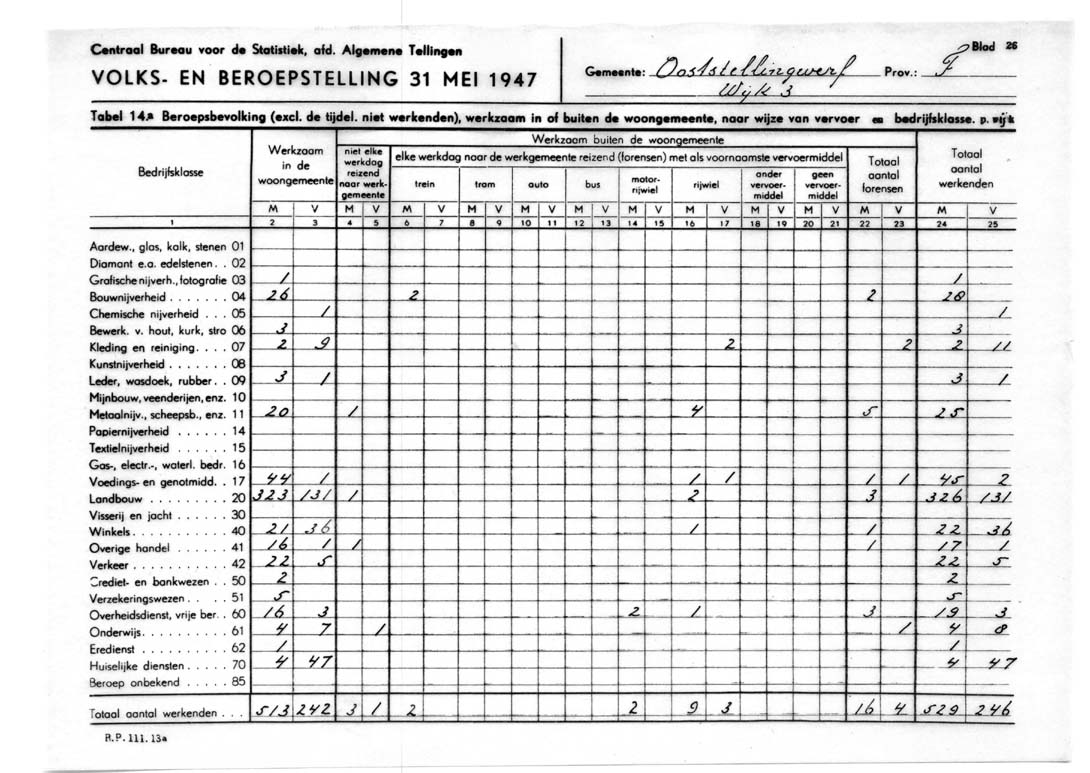 Centraal Bureau voor de Statistiek, afd. Algemene Tellingen
VOLKS- EN BEROEPSTELLING 31 MEI 1947
Gemeente: Ooststellingwerf Prov.: F
Wijk 3
Blad 26
Tabel 14.a Beroepsbevolking (excl. de tijdel. niet werkenden), werkzaam in of buiten de woongemeente, naar wijze van vervoer en bedrijfsklasse. p. wijk
Bedrijfsklasse
Werkzaam in de woongemeente
Werkzaam buiten de woongemeente
niet elke werkdag reizend naar werkgemeente
elke werkdag naar de werkgemeente reizend (forensen) met als voornaamste vervoermiddel
trein tram auto bus motor-rijwiel rijwiel ander vervoer-middel geen vervoer-middel
Totaal aantal forensen
Totaal aantal werkenden
M V M V M V M V M V M V M V M V M V M V M V M V
1 2 3 4 5 6 7 8 9 10 11 12 13 14 15 16 17 18 19 20 21 22 23 24 25
Aardew., glas, kalk, stenen 01
Diamant e.a. edelstenen . . 02
Grafische nijverh., fotografie 03 1 1
Bouwnijverheid . . . . . . . 04 26 2 2 28
Chemische nijverheid . . . 05 1 1
Bewerk. v. hout, kurk, stro 06 3 3
Kleding en reiniging . . . . 07 2 9 2 2 2 11
Kunstnijverheid . . . . . . 08
Leder, wasdoek, rubber . . 09 3 1 3 1
Mijnbouw, veenderijen, enz. 10
Metaalnijv., scheepsb., enz. 11 20 1 4 5 25
Papiernijverheid . . . . . . 14
Textielnijverheid . . . . . . 15
Gas-, electr.-, waterl. bedr. 16
Voedings- en genotmidd. . 17 44 1 1 1 1 1 45 2
Landbouw . . . . . . . . . 20 323 131 1 2 3 326 131
Visserij en jacht . . . . . . 30
Winkels . . . . . . . . . . . 40 21 36 1 1 22 36
Overige handel . . . . . . 41 16 1 1 1 17 1
Verkeer . . . . . . . . . . . 42 22 5 22 5
Crediet- en bankwezen . . 50 2 2
Verzekeringswezen . . . 51 5 5
Overheidsdienst, vrije ber. . 60 16 3 2 1 3 19 3
Onderwijs . . . . . . . . . . 61 4 7 1 1 4 8
Eredienst . . . . . . . . . . 62 1 1
Huiselijke diensten . . . . . 70 4 47 4 47
Beroep onbekend . . . . . 85
Totaal aantal werkenden . . . 513 242 3 1 2 2 9 3 16 4 529 246
R.P. 111. 13a